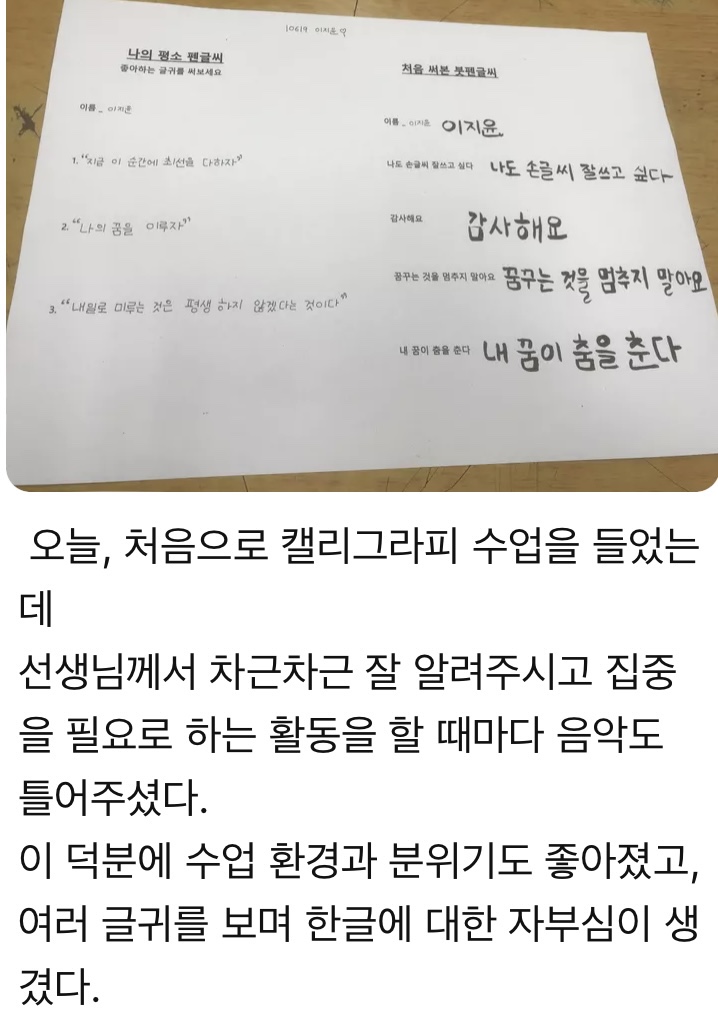 10619 이지윤
나의 평소 펜글씨
좋아하는 글귀를 써보세요
이름 _ 이지윤
1. "지금 이 순간에 최선을 다하자"
2. "나의 꿈을 이루자"
3. "내일로 미루는 것은 평생 하지 않겠다는 것이다"
처음 써본 붓펜글씨
이름 _ 이지윤 이지윤
나도 손글씨 잘쓰고 싶다 나도 손글씨 잘쓰고 싶다~
감사해요 감사해요
꿈꾸는 것을 멈추지 말아요 꿈꾸는 것을 멈추지 말아요
내 꿈이 춤을 춘다 내 꿈이 춤을 춘다
오늘, 처음으로 캘리그라피 수업을 들었는
데
선생님께서 차근차근 잘 알려주시고 집중
을 필요로 하는 활동을 할 때마다 음악도
틀어주셨다.
이 덕분에 수업 환경과 분위기도 좋아졌고,
여러 글귀를 보며 한글에 대한 자부심이 생
겼다.